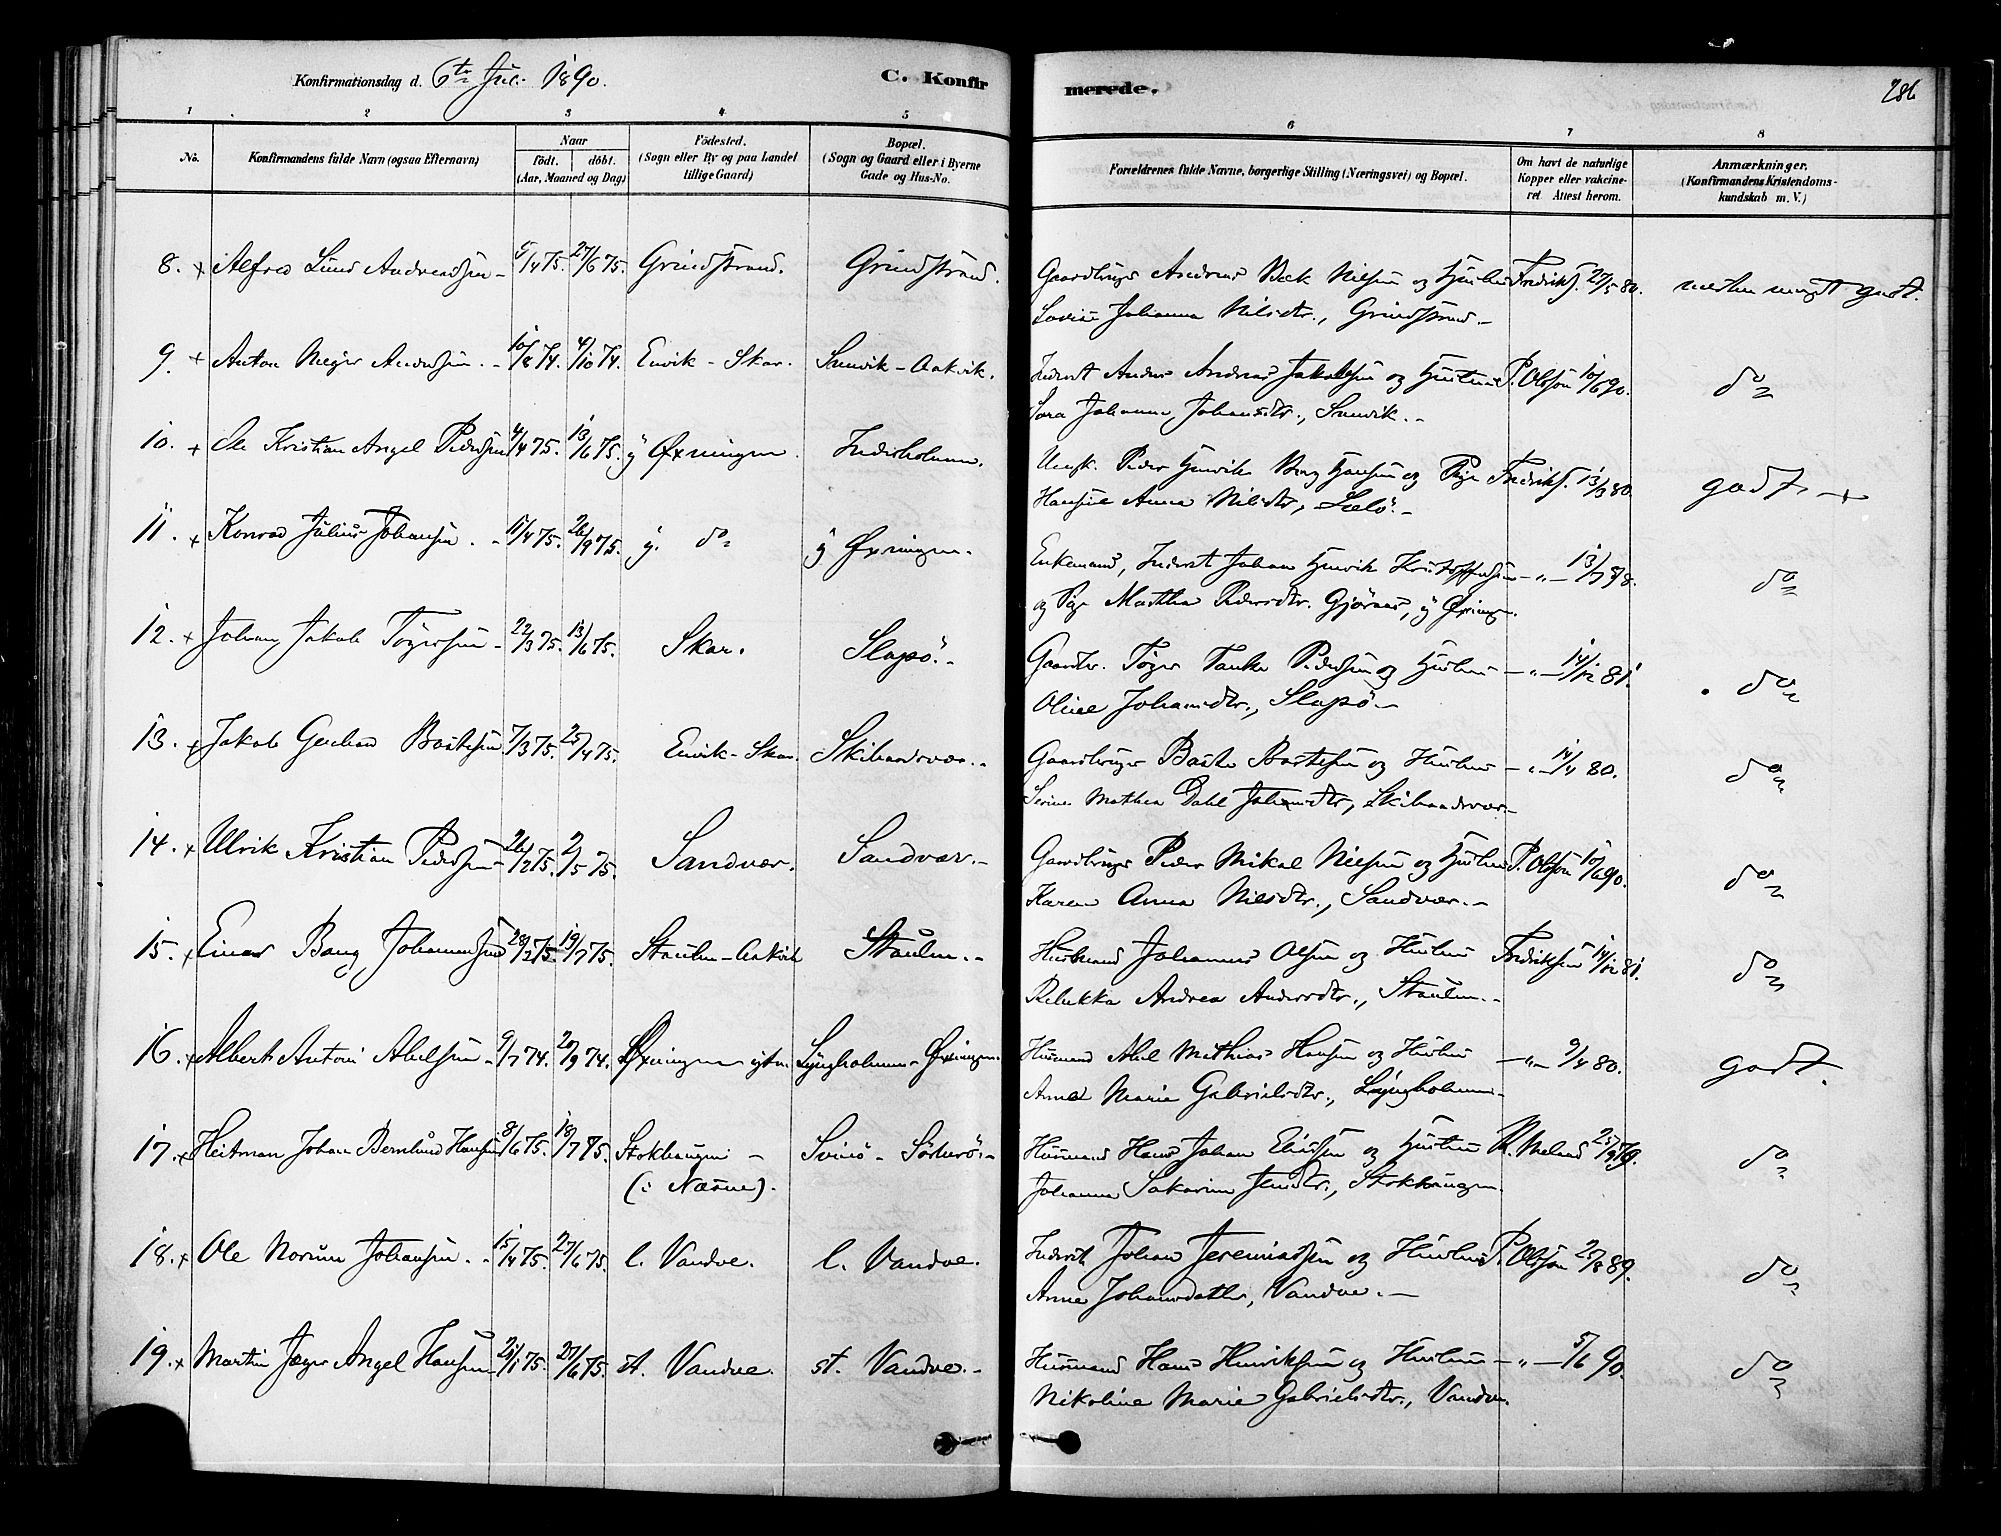 Konfirmationsdag d. 6te Juli 1890.
C. Konfirmerede.
286
1 2 3 4 5 6 7 8
No.
Konfirmandens fulde Navn (ogsaa Efternavn)
Naar
födt. döbt.
(Aar, Maaned og Dag)
Födested.
(Sogn eller By og paa Landet
tillige Gaard)
Bopæl.
(Sogn og Gaard eller i Byerne
Gade og Hus-No.
Forældrenes fulde Navne, borgerlige Stilling (Næringsvei) og Bopæl.
Om havt de naturlige
Kopper eller vakcine-
ret Attest herom.
Anmærkninger.
(Konfirmandens Kristendoms-
kundskab m. V.)
8. x Alfred Lund Andreassen - 5/4 75. 27/6 75. Grindstrand. Grindstrand. Gaardbruger Andreas Bech Nielsen og Hustru Fredriks. 27/5 80. næsten meget godt.
Lovise Johanna Nilsdtr., Grindstrand. -
9. x Anton Meyer Andersen. - 10/8 74. 4/10 74. Envik - Skar. Sanvik - Aakvik. Inderst Andreas Jakobsen og Hustru P. Olsson 10/6 90. do
Sara Johanna Johansdtr., Sanvik. -
10. x Ole Kristian Angel Pedersen 4/4 75. 13/6 75. y Øxningen. Inderholmen. Ungk. Peder Henrik Berg Hansen og Pige Fredriks. 13/3 80. godt. - x
Hansine Anna Nilsdtr,
11. x Konrad Julius Johansen. - 11/4 75. 26/9 75. y. do y Øxningen. Enkemand, Inderst Johan Henrik Kristoffersen - " - 13/7 78. do
og Pige Marthha Pedersdtr. Gjørnes, y Øxningen.
12. x Johan Jakob Tøgersen - 22/3 75. 13/6 75. Skar. Slapö. - Gaardbr. Tøger Tanke Pedersen og Hustru - " - 14/12 81. do
Oline Johansdtr., Slapö -
13. x Jakob Gerhard Bastesen 7/3 75. 25/4 75. Envik - Skar. Skibaadsvær. - Gaardbruger Baste Bastesen og Hustru - " - 14/4 80. do
Serine Mathea Dahl Johansdtr, Skibaadsvær -
14. x Ulrik Kristian Pedersen 26/2 75. 2/5 75. Sandvær. Sandvær. - Gaardbruger Peder Mikal Nielsen og Hustru P. Olsson 10/6 90. do
Karen Anna Nilsdtr., Sandvær. -
15. x Einar Bang Johannessen 28/2 75. 19/7 75. Staulen - Aakvik Staulen. - Husmand Johannes Olsen og Hustru Fredriksen 14/12 81. do
Rebekka Andrea Andersdtr., Staulen. -
16. x Albert Antoni Abelsen - 9/7 74. 20/9 74. Øxningen ytre. Lyngholmen - Øxningen. Husmand Abel Mathias Hansen og Hustru - " - 9/4 80. godt.
Anne Marie Gabrielsdtr., Lyngholmen. -
17. x Heitman Johan Bernlund Hansen 8/6 75. 18/7 75. Stokhaugen - Svinö - Söderö. - Husmand Hans Johan Eliassen og Hustru K. Meland 25/9 79. do
(i Næsne). Johanna Sakarina Jensdtr., Stokhaugen
18. x Ole Norum Johansen. - 15/4 75. 27/6 75. l. Vandve. l. Vandve. Inderst Johan Jeremiassen og Hustru P. Olsson 25/8 89. do
Anne Johansdatter, Vandve. -
19. x Martin Jæger Angel Hansen 21/1 75. 27/6 75. st. Vandve. st. Vandve. - Husmand Hans Henriksen og Hustru - " - 5/6 90. do
Nikoline Marie Gabrielsdtr., Vandve.